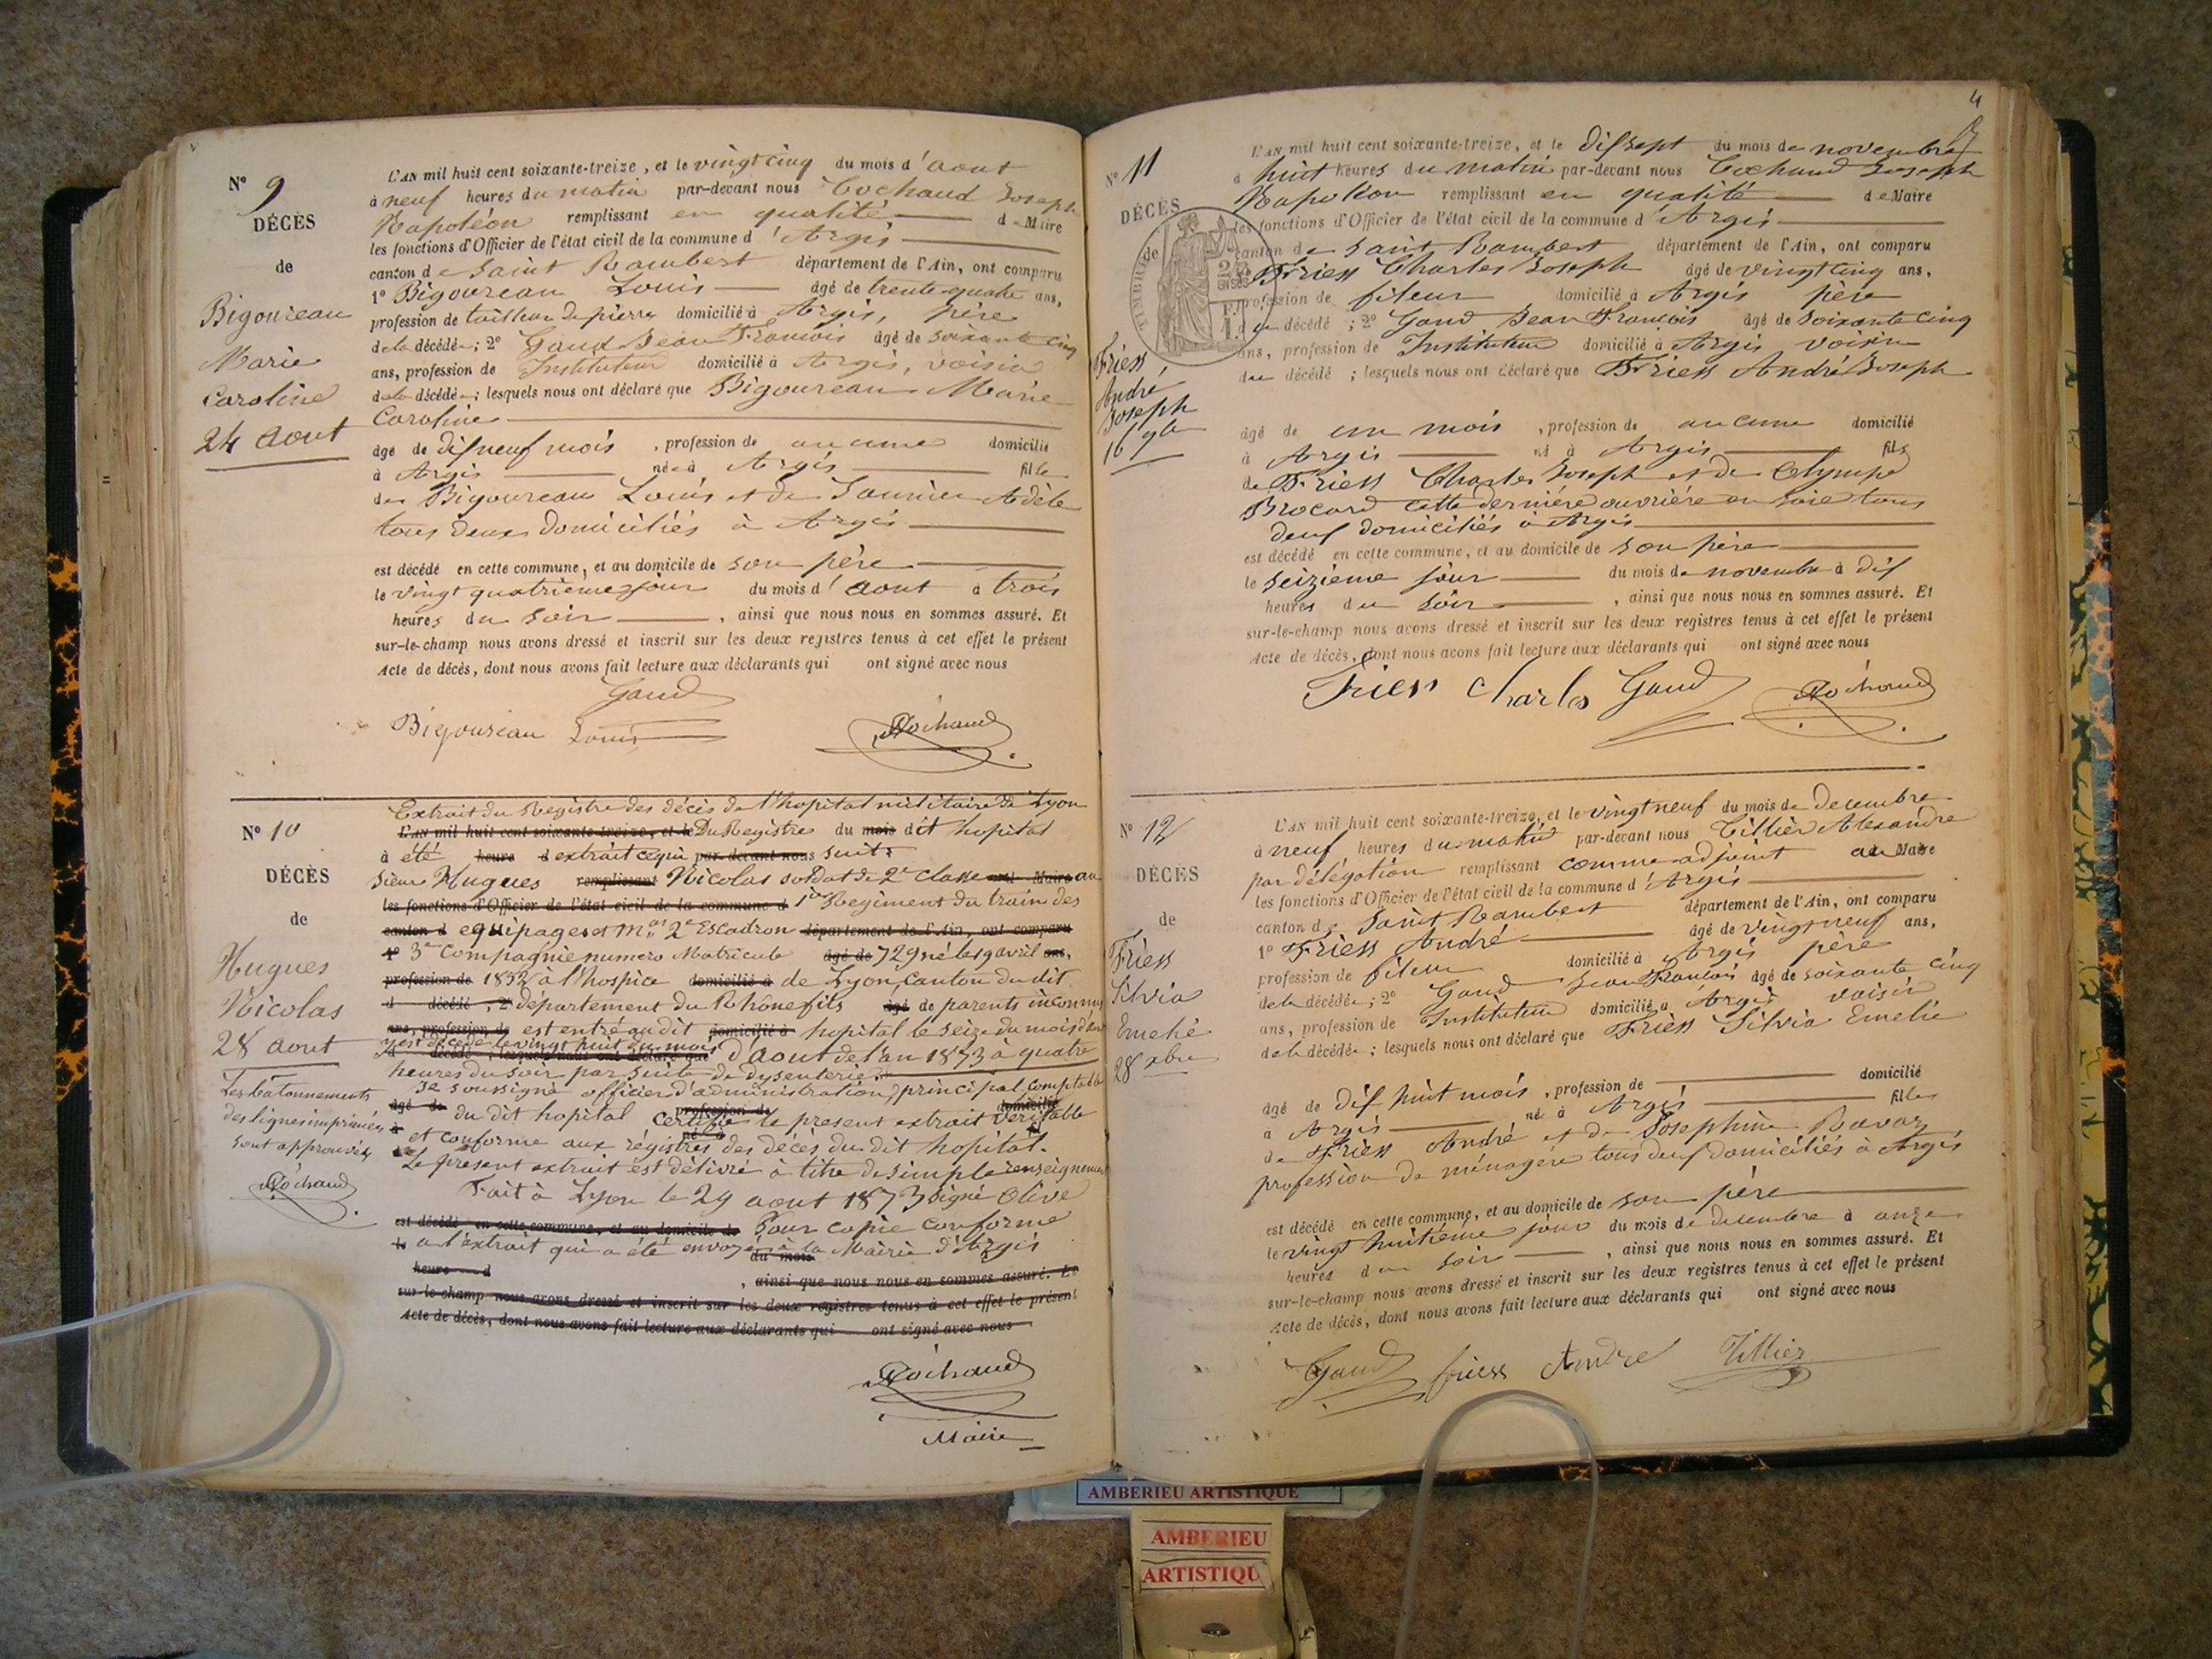 N° 9
DÉCÈS
de
Bigoureau
Marie
Caroline
24 aout
L'AN mil huit cent soixante-treize, et le vingt cinq du mois d'aout
à neuf heures du matin par-devant nous Cochaud Joseph
Napoléon remplissant en qualité de Maire
les fonctions d'Officier de l'état civil de la commune d'Argis
canton de Saint Rambert département de l'Ain, ont comparu
1° Bigoureau Louis âgé de trente-quatre ans,
profession de tailleur de pierre domicilié à Argis, père
de la décédée; 2° Gaud Jean François âgé de soixante cinq
ans, profession de Instituteur domicilié à Argis, voisin
de la décédée; lesquels nous ont déclaré que Bigoureau Marie
Caroline
âgé de disneuf mois, profession de aucune domicilié
à Argis née à Argis fille
de Bigoureau Louis et de Saunier Adèle
tous deux domiciliés à Argis
est décédé en cette commune, et au domicile de son père
le vingt quatrième jour du mois d'aout à trois
heures du soir, ainsi que nous nous en sommes assuré. Et
sur-le-champ nous avons dressé et inscrit sur les deux registres tenus à cet effet le présent
Acte de décès, dont nous avons fait lecture aux déclarants qui ont signé avec nous
Gaud
Bigoureau Louis Cochaud
N° 10
DÉCÈS
de
Hugues
Nicolas
28 aout
Les bâtonnements
des lignes imprimées
sont approuvés
Cochaud
Extrait du Registre des décès de l'hopital militaire de Lyon
L'AN mil huit cent soixante-treize, et le Du Registre du mois dit hopital
à été heure d extrait ce qui par-devant nous suit:
Sieur Hugues remplissant Nicolas soldat de 2e classe Maire au
les fonctions d'Officier de l'état civil de la commune d 1er Regiment du train des
canton d equipages et 2e Escadron département de l'Ain, ont comparu
1° 3e Compagnie numero Matricule âgé de 729 né le 19 avril ans,
profession de 1852 à l'hospice domicilié à de Lyon, canton du dit
d décédé, 2° département du Rhône fils âgé de parents inconnus
ans, profession de est entré au dit domicilié à hopital le seize du mois d'aout
y est décédé le vingt huit du mois
d'aout de l'an 1873 à quatre
heures du soir par suite de dysenterie.
Je soussigné officier d'administration, principal, comptable
âgé de du dit hopital certifie profession de le present extrait domicilié veritable
à et conforme aux régistres né à des décès du dit hopital.
Le present extrait est délivré à titre de simple renseignement
Fait à Lyon le 29 aout 1873 signé Olive
est décédé en cette commune, et au domicile de Pour copie conforme
le a l'extrait qui a été envoyé du mois à la Mairie d'Argis
heure d
, ainsi que nous nous en sommes assuré. Et
sur-le-champ nous avons dressé et inscrit sur les deux registres tenus à cet effet le présent
Acte de décès, dont nous avons fait lecture aux déclarants qui ont signé avec nous
Cochaud
Maire
4
N° 11
DÉCÈS
de
Friess
André
Joseph
16 9bre
L'AN mil huit cent soixante-treize, et le dissept du mois de novembre
à huit heures du matin par-devant nous Cochaud Joseph
Napoléon remplissant en qualité de Maire
les fonctions d'Officier de l'état civil de la commune d'Argis
canton de Saint Rambert département de l'Ain, ont comparu
Friess Charles Joseph âgé de vingt cinq ans,
profession de fileur domicilié à Argis père
du décédé; 2° Gaud Jean François âgé de soixante cinq
ans, profession de Instituteur domicilié à Argis voisin
du décédé; lesquels nous ont déclaré que Friess André Joseph
âgé de un mois, profession de aucune domicilié
à Argis né à Argis fils
de Friess Charles Joseph et de Olympe
Brocard cette dernière ouvrière en soie tous
deux domiciliés à Argis
est décédé en cette commune, et au domicile de son père
le seizième jour du mois de novembre à dix
heures du soir, ainsi que nous nous en sommes assuré. Et
sur-le-champ nous avons dressé et inscrit sur les deux registres tenus à cet effet le présent
Acte de décès, dont nous avons fait lecture aux déclarants qui ont signé avec nous
Friess Charles Gaud Cochaud
N° 12
DÉCÈS
de
Friess
Silvia
Emelie
28 xbre
L'AN mil huit cent soixante-treize, et le vingt neuf du mois de decembre
à neuf heures du matin par-devant nous Tillier Alexandre
par délégation remplissant comme adjoint au Maire
les fonctions d'Officier de l'état civil de la commune d'Argis
canton de Saint Rambert département de l'Ain, ont comparu
1° Friess André âgé de vingt neuf ans,
profession de fileur domicilié à Argis père
de la décédée; 2° Gaud Jean François âgé de soixante cinq
ans, profession de Instituteur domicilié à Argis voisin
de la décédée; lesquels nous ont déclaré que Friess Silvia Emelie
âgé de dix huit mois, profession de domicilié
à Argis né à Argis fille
de Friess André et de Josephine Ravaz
profession de ménagère tous deux domiciliés à Argis
est décédé en cette commune, et au domicile de son père
le vingt huitième jour du mois de decembre à onze
heures du soir, ainsi que nous nous en sommes assuré. Et
sur-le-champ nous avons dressé et inscrit sur les deux registres tenus à cet effet le présent
Acte de décès, dont nous avons fait lecture aux déclarants qui ont signé avec nous
Gaud friess André Tillier
AMBERIEU ARTISTIQUE
AMBERIEU
ARTISTIQU